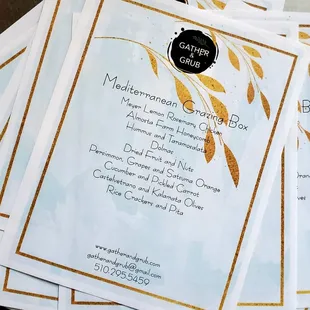 GATHER
&
GRUB
Mediterranean Grazing Box
Meyer Lemon Rosemary Chevre
Almorta Farm Honeycomb
Hummus and Taramasalata
Dolmas
Dried Fruit and Nuts
Persimmon, Grapes and Satsuma Orange
Cucumber and Pickled Carrot
Castelvetrano and Kalamata Olives
Rice Crackers and Pita
www.gatherandgrub.com
gatherandgrub@gmail.com
510.295.5459